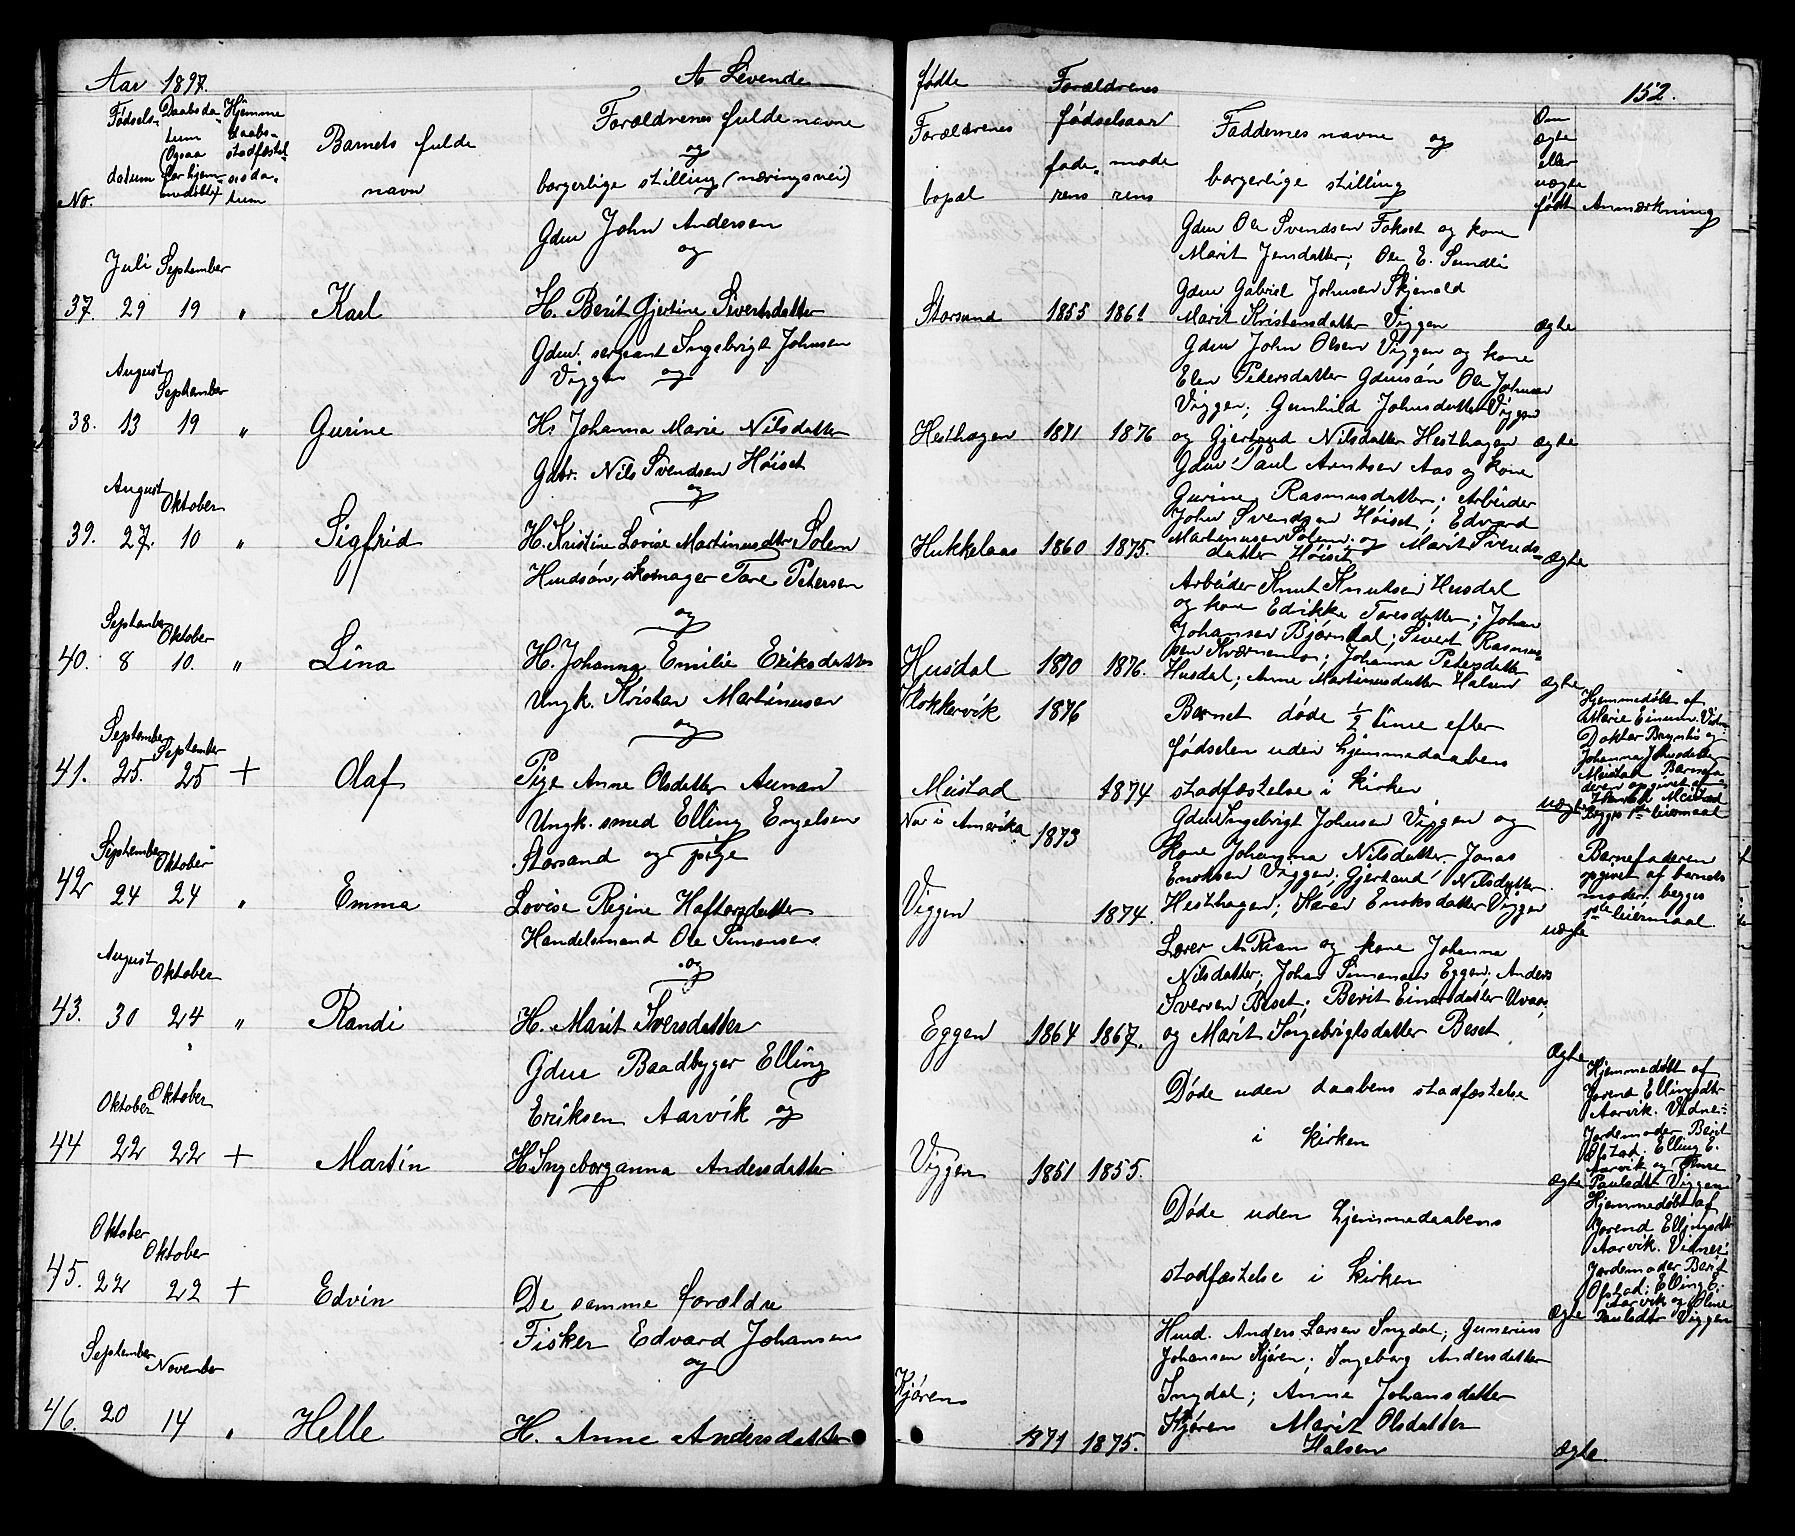 Aar 1897. A Levende
Fødsels- Daabsda- Hjemme
tum daabs-
(Ogsaa stadfæstel-
datum for hjem- ses da-
medøbte) tum
No.
Barnets fulde
navn
Forældrenes fulde navne
og
borgerlige stilling (næringsvei)
Gdm John Andersen
og
Juli September
37. 29 19 " Karl H. Berit Gjertine Sivertsdatter
Gdm. sergeant Ingebrigt Johnsen
Viggen og
August September
38. 13 19 " Gurine H. Johanna Marie Nilsdatter
Gdbr. Nils Svendsen Høiset
og
August Oktober
39. 27. 10 " Sigfrid H. Kristine Lovise Martinusdtr Solem
Husdsøn, skomager Tore Petersen
og
September Oktober
40. 8 10. " Lina H. Johanna Emilie Eriksdatter
Ungk. Kristian Martinusen
og
September September
41. 25. 25 + Olaf Pige Anne Olsdatter Aunan
Ungk. smed Elling Engelsen
Storsand og pige
September Oktober
42 24 24 " Emma Lovise Regine Haftorsdatter
Handelsmand Ole Simonsen
og
August Oktober
43. 30 24 " Randi H. Marit Iversdatter
Gdm Baadbygger Elling
Eriksen Aarvik og
Oktober Oktober
44 22 22 + Martin H. Ingeborganna Andersdatter
Oktober Oktober
45. 22 22 + Edvin De samme forældre
Fisker Edvard Johansen
og
September November
46. 20 14 " Helle H. Anne Andersdatter
fødte Forældrenes 152.
Forældrenes fødselsaar Faddernes navne og
bopæl fade- mode-
rens rens borgerlige stilling
Om
ægte
eller
uægte
født Anmærkning
Gdm Ole Svendsen Fokset og kone
Marit Jensdatter; Ole E. Sundli
Gdm Gabriel Johnsen Skjenald
Storsand 1855 1861 Marit Kristensdatter Viggen ægte
Gdm John Olsen Viggen og kone
Elen Petersdatter Gdmsøn Ole Johnsen
Viggen; Gunhild Johnsdatter Viggen
Hesthagen 1871 1876 og Gjertrud Nilsdatter Hesthagen ægte
Gdm Paul Arntsen Aas og kone
Gurine Rasmusdatter; Arbeider
John Svendsen Høiset; Edvard
Martinusen Solem og Marit Svends-
Hukkelaas 1860 1875. datter Høiset ægte
Arbeider Knut Knutsen Husdal
og kone Edrikke Toresdatter; Johan
Johansen Bjørndal; Sivert Rasmus-
sen Kværnemo; Johanna Petersdatter
Husdal 1870 1876. Husdal; Anne Martinusdatter Halsen ægte
Klokkervik 1876 Barnet døde ½ time efter
fødselen uden hjemmedaabens
Meistad 1874 stadfæstelse i kirken uægte
Hjemmedøbt af
Marie Einum. Vidne:
Doktor og
Johanna Johnsdatter
Meistad Barnefa-
deren opgivet af
Meistad
Begges 1ste leiermaal
Nu i Amerika 1873 Gdm Ingebrigt Johnsen Viggen og
kone Johanna Nilsdatter. Jonas
Enoksen Viggen; Gjertrud Nilsdatter
Viggen 1874. Hesthagen; Karen Enoksdatter Viggen uægte
Barnefaderen
opgivet af barnets
moder. begges
1ste leiermaal.
Lærer A. Rian og kone Johanna
Nilsdatter; Johan Simonsen Eggen; Anders
Iversen Beset; Berit Einarsdatter Uvaas,
Eggen 1864 1867. og Marit Ingebrigtsdatter Beset ægte
Døde uden daabens stadfæstelse
i kirken
Viggen 1851 1855. ægte
Hjemmedøbt af
Jorend Ellingsdtr
Aarvik. Vidne:
Jordemoder Berit
Ofstad. Elling E.
Aarvik og Oline
Paulsdtr Viggen
Døde uden hjemmedaabens
stadfæstelse i kirken ægte
Hjemmedøbt af
Jorend Ellingsdtr
Aarvik. Vidner
Jordemoder Berit
Ofstad; Elling E.
Aarvik og Oline
Paulsdtr Viggen
Husd. Anders Larsen Sugdal; Gunerius
Johansen Kjøren; Ingeborg Andersdatter
Kjøren Sugdal; Anne Johansdatter
Kjøren Marit Olsdatter
1871 1875. Halsen ægte.